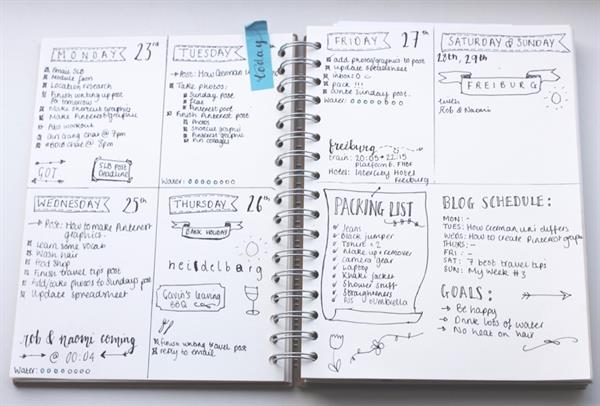 MONDAY 23rd
Email SLB
Module form
Location research
Finish writing up post
for tomorrow
Make shortcut graphics
Make Pinterest graphics
Abs workout
#BDIB chat @ 8pm
GOT
SLB Post
Deadline
TUESDAY
today
Post: How German uni
Take photos:
Sunday post
Pinterest post
Finish Pinterest post
Photos
Shortcut graphic
Pinterest graphic
Water:
WEDNESDAY 25th
Post: How to make Pinterest
graphics
Learn some vocab
Wash hair
Food shop
Finish travel tips post
Add/take photos to Sunday's post
Update spreadsheet
rob & naomi coming
@ 00:04
Water:
THURSDAY 26th
BANK HOLIDAY
heidelberg
Gavin's leaving
BBQ
Finish writing travel post
reply to email
FRIDAY 27th
add photos/graphics to post
update spreadsheet
inbox: 0
pack!!!
write Sunday post
Water:
freiburg
train: 20:05 → 22:15
Platform 6, FHBF
Hotel: Intercity Hotel
Freiburg
SATURDAY & SUNDAY
28th, 29th
FREIBURG
with
Rob & Naomi
PACKING LIST
Jeans
Black jumper
Tshirt x 2
Make up + remover
Camera gear
Laptop
Khaki jacket
Shower stuff
Straighteners
umbrella
BLOG SCHEDULE:
MON: -
TUES: How German uni differs
WEDS: How to create Pinterest graphics
THURS: -
FRI: -
SAT: 7 best travel tips
SUN: My Week #3
GOALS:
Be happy
Drink lots of water
No heat on hair